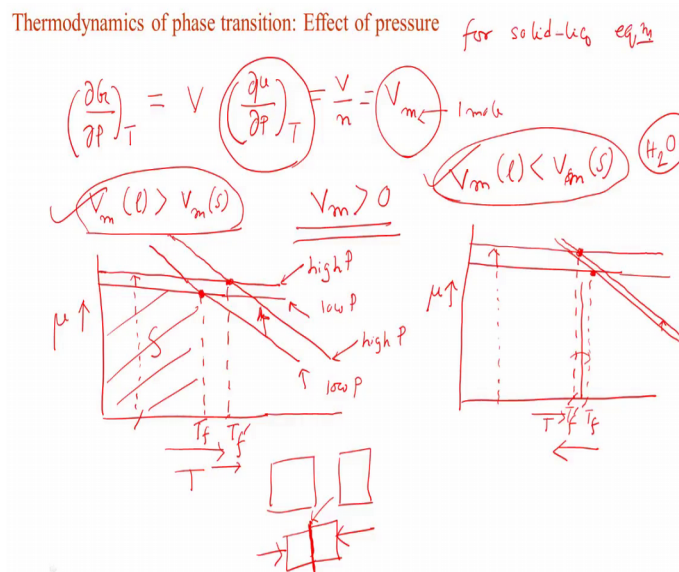 Thermodynamics of phase transition: Effect of pressure
for solid-liq eqm
(∂G/∂P)_T = V (∂μ/∂P)_T = V/n = V_m ← 1 mole
V_m(l) > V_m(s)
V_m > 0
V_m(l) < V_m(s)
H₂O
high P
low P
high P
low P
μ ↑
S
T_f T_f'
T →
μ ↑
T → T_f' T_f